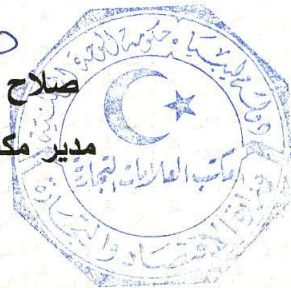 صلاح
مدير مك
دولة ليبيا • حكومة الوحدة الوطنية
مكتب العلامات التجارية
وزارة الاقتصاد والتجارة